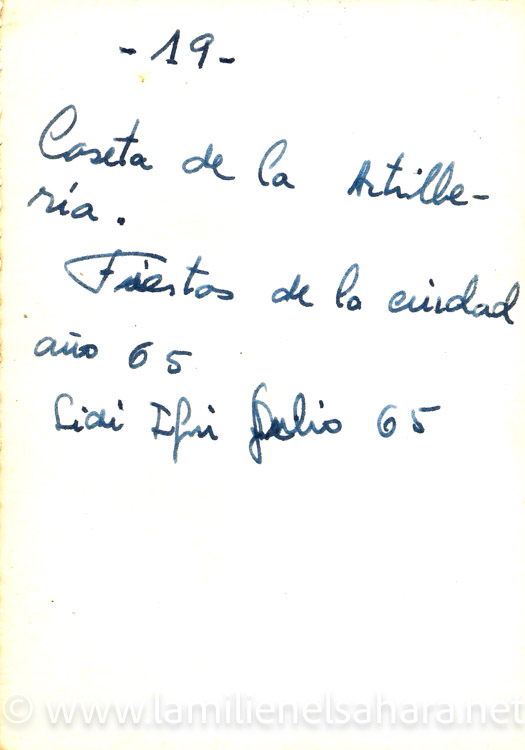 - 19 -
Caseta de la Artille-
ría.
Fiestas de la ciudad
año 65
Sidi Ifni Julio 65
© www.lamilienelsahara.net